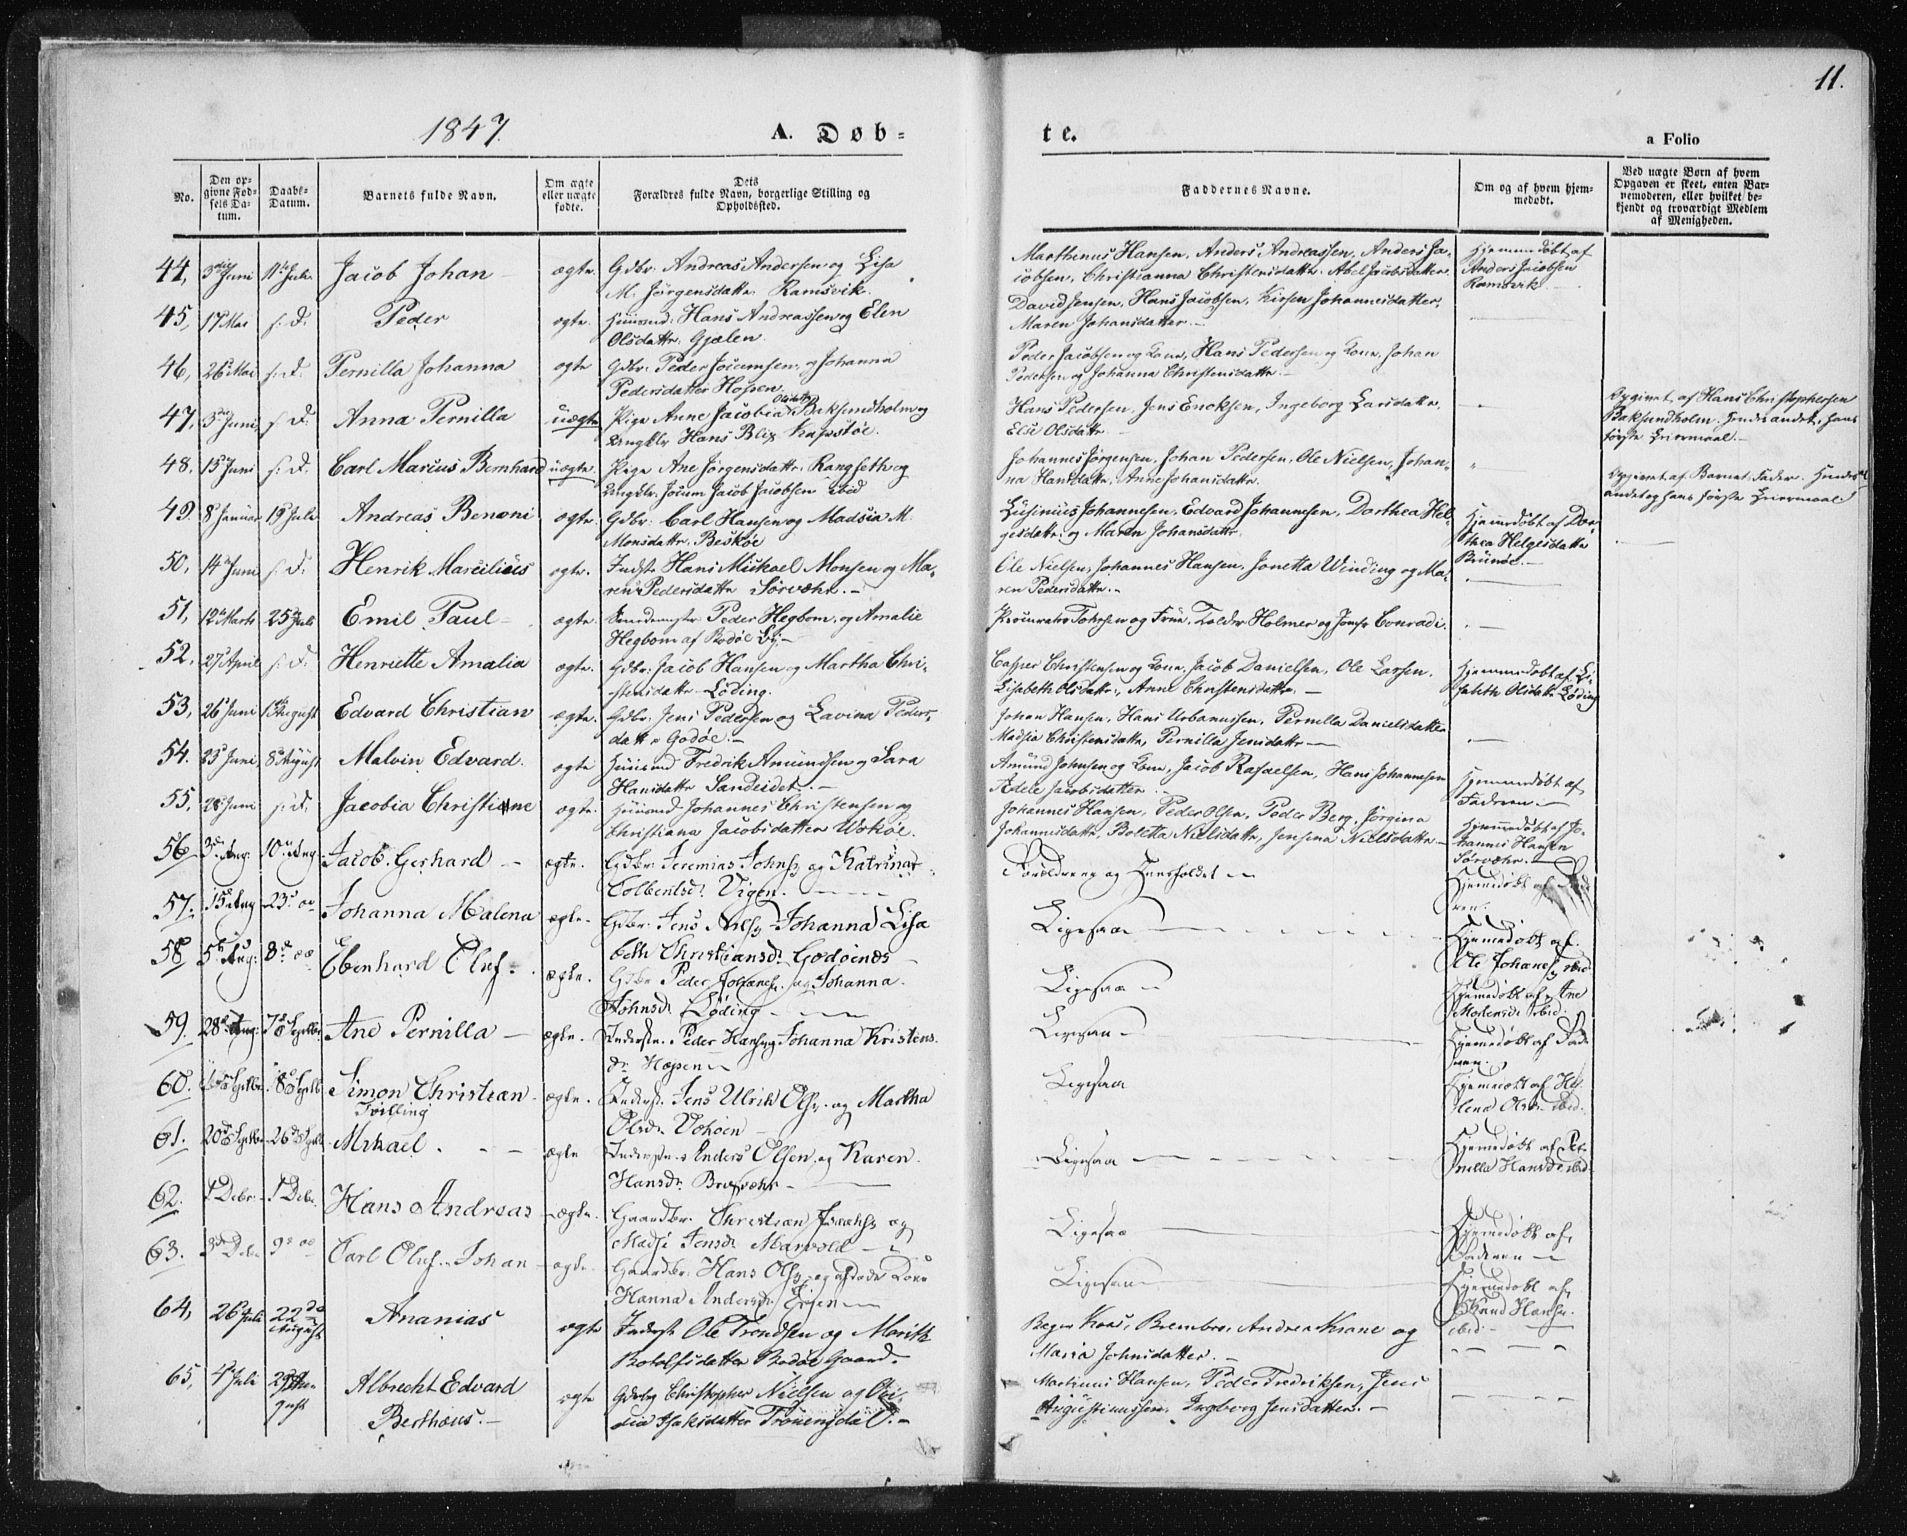 11.
1847.
A. Døb-
te.
a Folio
No.
Den op-
givne Fød-
sels Da-
tum.
Daabs-
Datum.
Barnets fulde Navn.
Om ægte
eller uægte
fødte.
Dets
Forældres fulde Navn, borgerlige Stilling og
Opholdssted.
Faddernes Navne.
Om og af hvem hjem-
medøbt.
Ved uægte Børn af hvem
Opgaven er skeet, enten Bar-
nemoderen, eller hvilket be-
kjendt og troværdigt Medlem
af Menigheden.
44, Juni Juli Jacob Johan ægte. Gdbr. Andreas Andersen og Lisa
M. Jørgensdattr. Ramsvik.
Marthinus Hansen, Anders Andreassen, Anders Ja-
cobsen, Christianna Christensdattr. Abel Jacobsdatter.
Hjemmedøbt af
Anders Jacobsen
Ramsvik
45, 17 Mai s. D. Peder ægte. Huusmd. Hans Andreassen og Elen
Olsdattr. Gjælen.
David Jensen, Hans Jacobsen, Kirsen Johannesdatter,
Maren Johansdatter.
46, 26 Mai s. D. Pernilla Johanna ægte Gdbr. Peder Joicumsen og Johanna
Pedersdatter Hopen.
Peder Jacobsen og Kone, Hans Pedersen og Kone, Johan
Pedersen og Johanna Christensdattr.
47, Juni, s. D. Anna Pernilla uægte Pige Anne Jacobia Olsdattr Baksundholm og
Ungkl. Hans Blix Kapstøe.
Hans Pedersen, Jens Enoksen, Ingeborg Larsdattr,
Else Olsdattr
Opgivet af Hans Christophersen
Baksundholm. Hendes andet, hans
første Leiermaal.
48, 15 Juni s. D. Carl Marcus Bernhard uægte. Pige Ane Jørgensdattr. Rangseth og
Ungkl. Jocum Jacob Jacobsen ibid
Johannes Jørgensen, Johan Pedersen, Ole Nielsen, Johan-
na Hansdattr, Anne Johansdattr.
Opgivet af Barnets Fader. Hendes
andet og hans første Leiermaal
49. 8 Januar 19 Juli Andreas Benoni ægte. Gdbr. Carl Hansen og Madsia M.
Monsdattr. Beskøe
Lusinius Johannesen, Edvard Johannesen, Dorthea Hel-
gesdattr. og Maren Johansdattr.
Hjemmedøbt af Dor-
thea Helgesdattr
50, 14 Juni s. D. Henrik Marcilius ægte. Indst. Hans Mickael Monsen og Ma-
ren Pedersdattr Sørvæhr.
Ole Nielsen, Johannes Hansen, Jonetta Winding og Ma-
ren Pedersdattr.
51, 12 Marts 25 Juli Emil Paul ægte. Peder Hegbom og Amalie
Hegbom af Bodøe By.
Procurator Fohrsen og Frue, Tolder Holmer og Jomfr Conradi.
52, 27 April s. D. Henriette Amalia ægte. Gdbr. Jacob Hansen og Martha Chri-
stensdattr Løding.
Casper Christensen og Kone, Jacob Danielsen, Ole Larsen,
Lisabeth Olsdattr, Anne Christensdattr.
Hjemmedøbt af Li-
sabeth Olsdattr Løding
53, 26 Juni 1 August Edvard Christian ægte. Gdbr. Jens Pedersen og Lavina Peders-
dattr Godøe.
Johan Hansen, Hans Urbanussen, Pernella Danielsdatter
Madsia Christensdattr, Pernilla Jensdattr
54. 23 Juni 8 August Malvin Edvard. ægte Huusmd Fredrik Amundsen og Sara
Hansdattr Sandeidet.
Amund Johnsen og Kone, Jacob Rafaelsen, Hans Johannesen
Adele Jacobsdatter
Hjemmedøbt af
Faderen.
55, 28 Juni s. D. Jacobia Christiane ægte. Huusmd Johannes Christensen og
Christiana Jacobsdatter Wokøe.
Johannes Hansen, Peder Olsen, Peder Berg, Jørgina
Johannesdattr, Boletta Nielsdattr, Jensina Nielsdattr
Hjemmedøbt af Jo-
hannes Hansen
Sørvæhr.
56 3 Aug. 10 Aug Jacob Gerhard ægte. Gdbr. Jeremias Johns. og Katrina
Tolbentsd. Vigen.
Forældrene og Huusholdet
Hjemedøbt af Fade-
ren.
57. 15 Aug 23 Johanna Malena ægte. Gdbr. Jens Johanna Lisa
beth Christiansd. Godøenes
Ligesaa
Hjemedøbt af
Ole Johannes. ibid
58 5 Aug. 8 Ebenhard Oluf. ægte. Gdbr. Peder Johannes. og Johanna
Johnsd. Løding
Ligesaa
Hjemedøbt af Ane
59. 28 Aug. Septbr Ane Pernilla ægte. Inderste. Peder Hans. og Johanna Kristens
d. Hopen
Ligesaa
Hjemedøbt af Fade
ren.
60. Septbr. 18 Septb Simon Christian
Tvilling ægte. Inderst. Jens Ulrik Ols. og Martha
Olsd.
Ligesaa
Hjemedøbt af He-
lena Olsd. ibid.
61. 20 Septbr. 26 Septb Mikael. ægte Inderste. Anders Olsen og Karen
Hansd.
Ligesaa
Hjemedøbt af Per
nilla Hansd. ibid.
62. Hans Andreas ægte. Gaardbr. Christian Isachs. og
Jensd. Marvold
Ligesaa
Hjemedøbt af
Faderen
63. Carl Oluf Johan ægte. Gaardbr. Hans Ols. og afdøde Kone
Hanna Andersd.
Ligesaa
Hjemedøbt af
Knud Hans.
ibid
64, 26 Juli 22 August Ananias ægte Inderst Ole Trondsen og Marith
Botolfsdatter Bodøe Gaard.
Bager Koss, Brembro, Andrea Krane og
Maria Johnsdatter.
65, 4 Juli Au-
gust Albrecht Edvard
Berthous. ægte Gdbr Christopher Nielsen og
Isaksdatter
Martinus Hansen, Peder Fredriksen, Jens
Augustinussen, Ingborg Jensdatter.